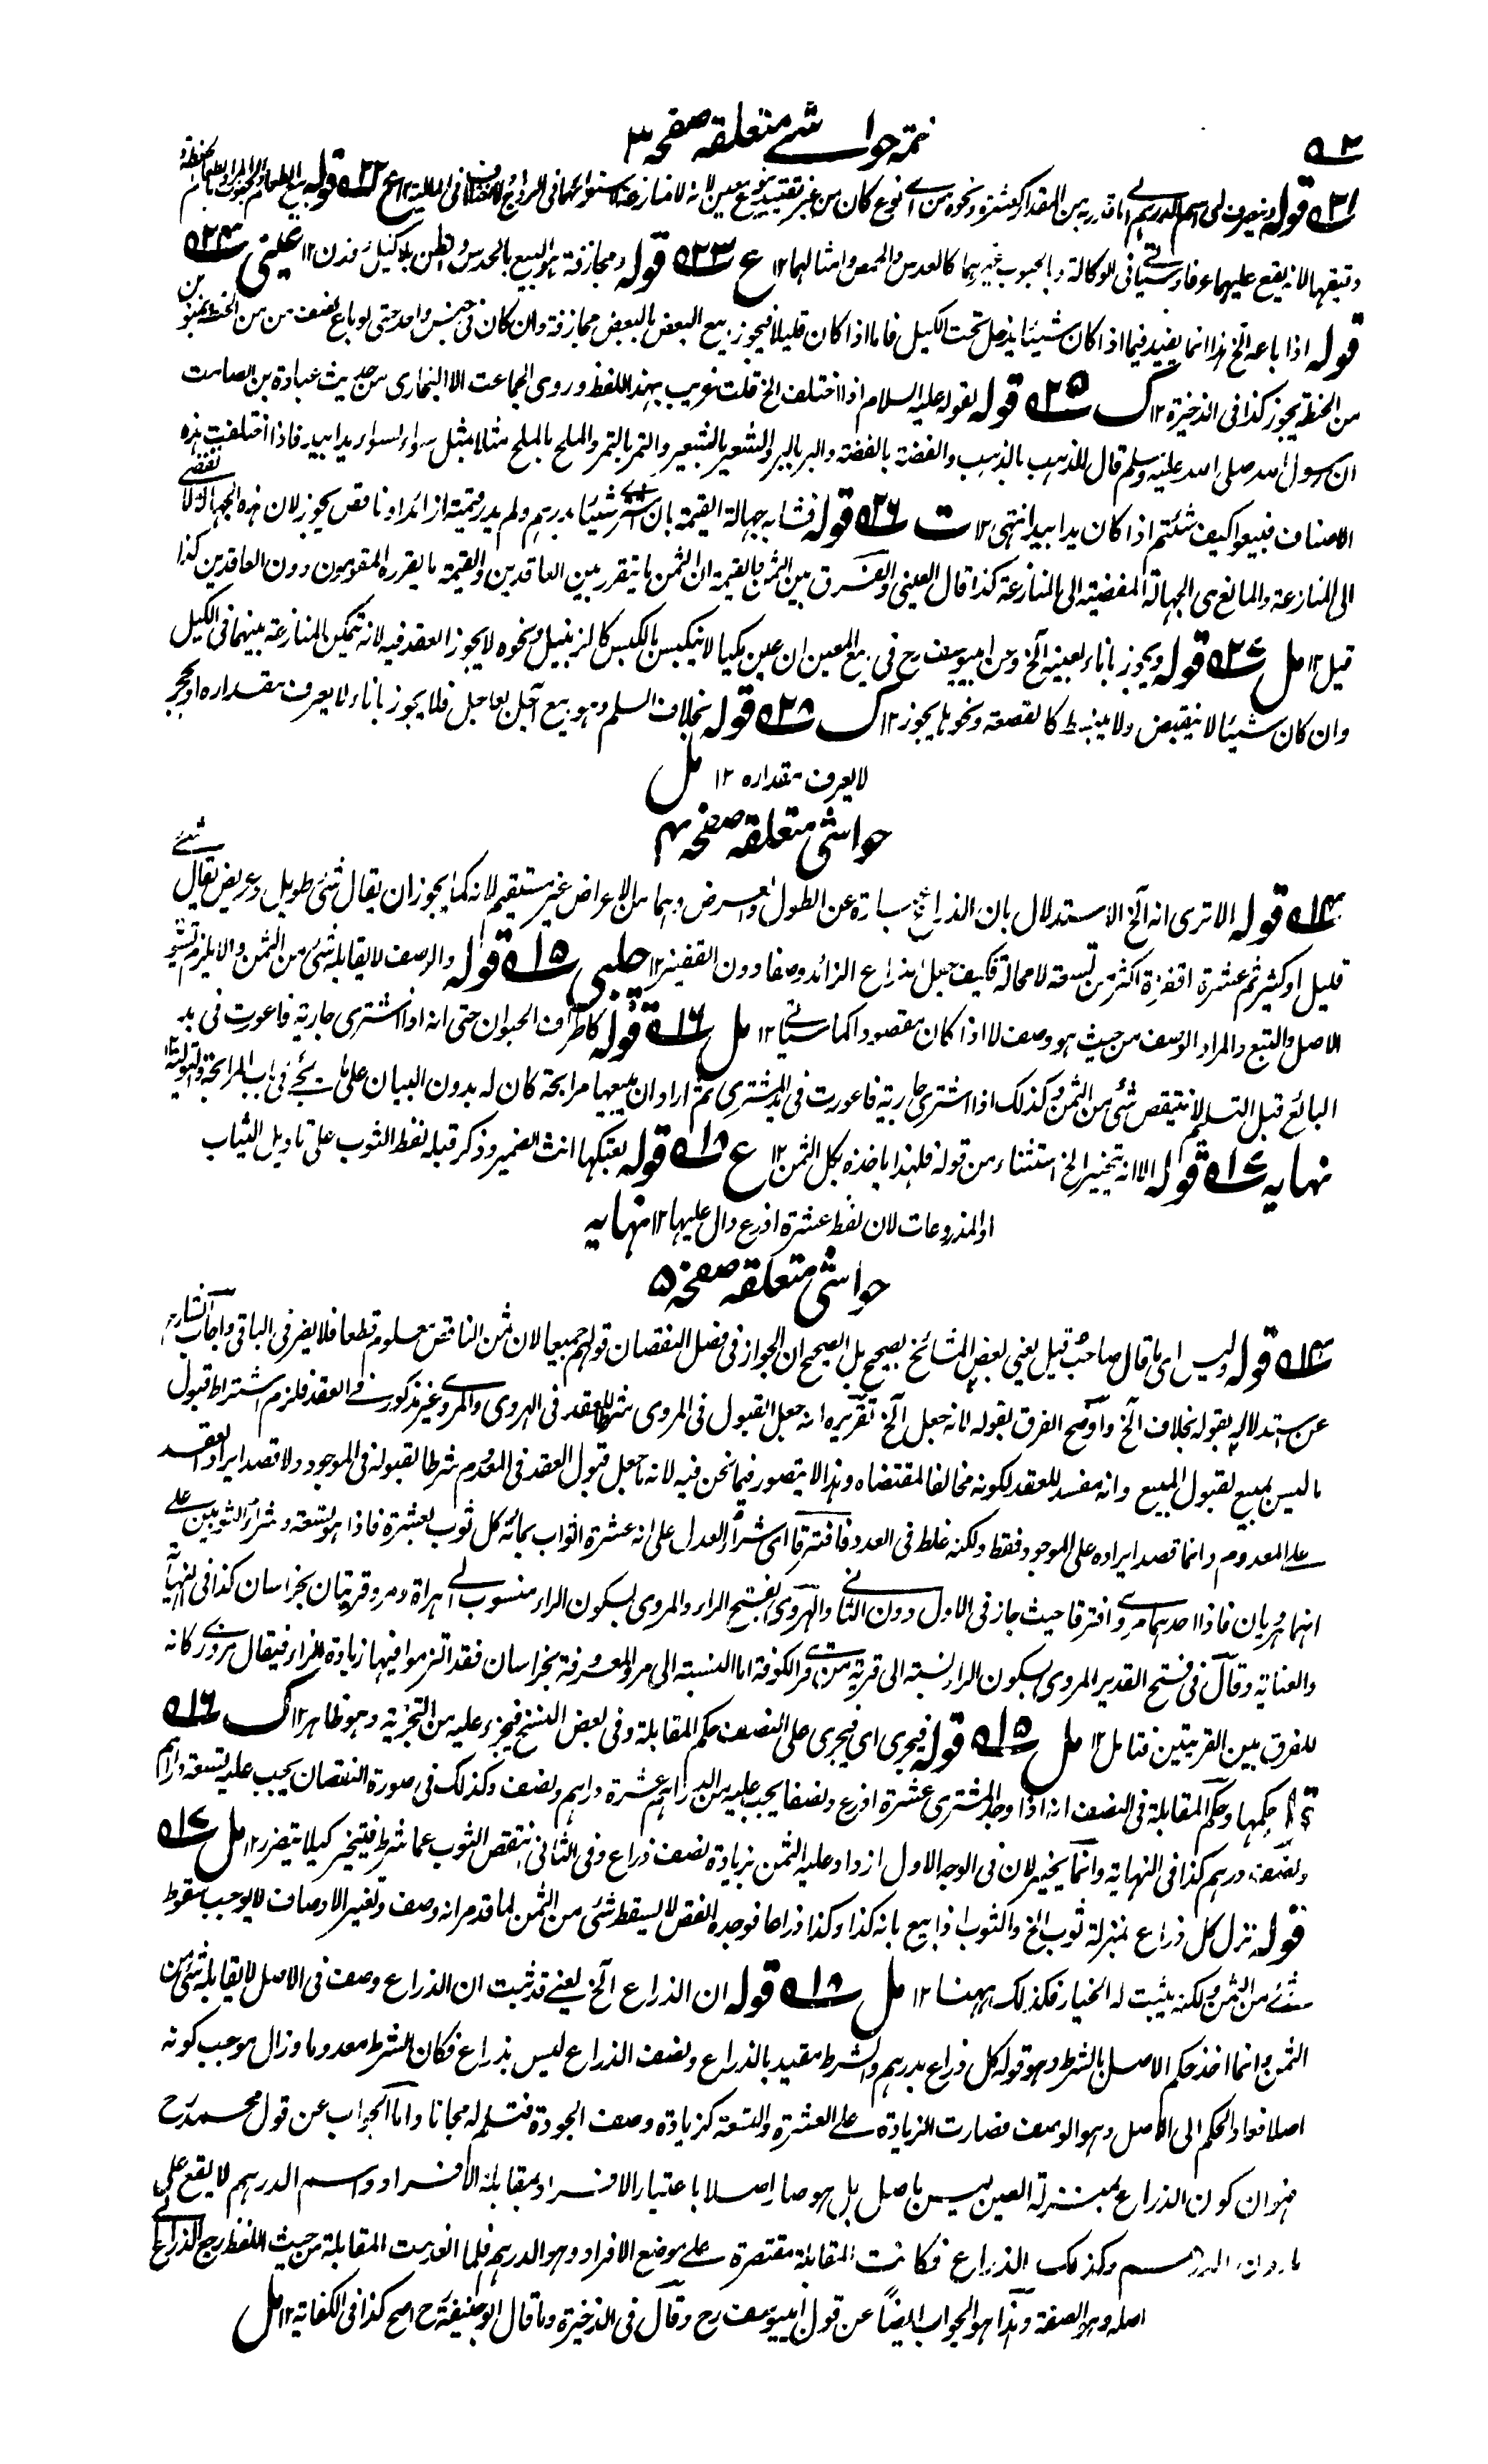 تتمه حواشے متعلقه صفحه ٣
٥٢
٢١ قوله وينصرف الى اسم الدرهم اى ما قدر به من المقدار كعشرة ونحوه من اى نوع كان من غير تقييد بنوع معين لانه لا منازعة لاستوائهما فى الرواج فى المالية ١٢ ع ٢٢ قوله بيع الطعام والحبوب المراد بالطعام الحنطة و
دقيقها لانه يقع عليهما عرفا وسياتى فى الوكالة وبالحبوب غيرهما كالعدس والحمص وامثالهما ١٢ ع ٢٣ قوله ومجازفة هو البيع بالحدس والظن بلا كيل ووزن ١٢ عينى ٢٤
قوله اذا باعه الخ هذا انما يفيد فيما اذا كان شيئا يدخل تحت الكيل فاما اذا كان قليلا فيجوز بيع البعض بالبعض مجازفة وان كان فى جنس واحد حتى لو باع نصف من من الحنطة بمنوين
من الحنطة يجوز كذا فى الذخيرة ١٢ ك ٢٥ قوله لقوله عليه السلام اذا اختلف الخ قلت غريب بهذا اللفظ وروى الجماعت الا البخارى من حديث عبادة بن الصامت
ان رسول الله صلى الله عليه وسلم قال الذهب بالذهب والفضة بالفضة والبر بالبر والشعير بالشعير والتمر بالتمر والملح بالملح مثلا بمثل سواء بسواء يدا بيد فاذا اختلفت هذه
الاصناف فبيعوا كيف شئتم اذا كان يدا بيد انتهى ١٢ ت ٢٦ قوله فشابه جهالة القيمة بان اشترى شيئا بدرهم ولم يدر قيمته ازائدا وناقص يجوز لان هذه الجهالة لا تفضى
الى المنازعة والمانع هى الجهالة المفضية الى المنازعة كذا قال العينى والفرق بين الثمن والقيمة ان الثمن ما يتقرر بين العاقدين والقيمة ما يقرره المقومون دون العاقدين كذا
قيل ١٢ مل ٢٧ قوله ويجوز باناء بعينه الخ وعن ابييوسف رح فى بيع المعين ان عين مكيالا ينكبس بالكبس كالزنبيل ونحوه لا يجوز العقد فيه لانه تتمكن المنازعة بينهما فى الكيل
وان كان شيئا لا ينقبض ولا ينبسط كالقصعة ونحوها يجوز ١٢ ك ٢٨ قوله بخلاف السلم وهو بيع آجل بعاجل فلا يجوز باناء لا يعرف مقداره او بحجر
لا يعرف مقداره ١٢ مل
حواشى متعلقه صفحه ٤
١٤ قوله الا ترى انه الخ الاستدلال بان الذراع عبارة عن الطول والعرض وهما من الاعراض غير مستقيم لانه كما يجوز ان يقال شئ طويل وعريض يقال شئے
قليل او كثير ثم عشرة اقفزة اكثر من تسعة لا محالة فكيف جعل الذراع الزائد وصفا دون القفيز ١٢ چلپى ١٥ قوله والوصف لا يقابله شئ من الثمن والا يلزم تسوية
الاصل والتبع والمراد الوصف من حيث هو وصف لا اذا كان مقصودا كما سياتى ١٢ مل ١٦ قوله كاطراف الحيوان حتى انه اذا اشترى جارية فاعورت فى يد
البائع قبل التسليم لا ينتقص شئ من الثمن وكذلك اذا اشترى جارية فاعورت فى يد المشترى ثم اراد ان يبيعها مرابحة كان له بدون البيان على ما يجئ فى باب المرابحة والتولية ١٢
نهايه ١٧ قوله الا انه يتخير الخ استثناء من قوله فلهذا ياخذه بكل الثمن ١٢ ع ١٨ قوله بعتكها انث الضمير وذكر قبله لفظ الثوب على تاويل الثياب
او المذروعات لان لفظ عشرة اذرع دال عليها ١٢ نهايه
حواشى متعلقه صفحه ٥
١٤ قوله وليس اى ما قال صاحب قيل يعنى بعض المشائخ بصحيح بل الصحيح ان الجواز فى فصل النقصان قولهم جميعا لان ثمن الناقص معلوم قطعا فلا يضر فى الباقى واجاب الشارح
عن استدلاله بقوله بخلاف الخ واوضح الفرق بقوله لانه جعل الخ تقريره انه جعل القبول فى المروى شرطا للعقد فى الهروى والمروى غير مذكور فے العقد فلزم اشتراط قبول
ما ليس بمبيع لقبول المبيع وانه مفسد للعقد لكونه مخالفا لمقتضاه وهذا لا يتصور فيما نحن فيه لانه ما جعل قبول العقد فى المعدوم شرطا لقبوله فى الموجود ولا قصد ايراد العقد
على المعدوم وانما قصد ايراده على الموجود فقط ولكنه غلط فى العدد فافترقا اى شراء العدل على انه عشرة اثواب بمائة كل ثوب بعشرة فاذا هو تسعة وشراء الثوبين علے
انهما هرويان فاذا احدهما مروى وافترقا حيث جاز فى الاول دون الثانى والهروى بفتح الراء والمروى بسكون الراء منسوب الى هراة ومرو قريتان بخراسان كذا فى النهاية
والعناية وقال فى فتح القدير المروى بسكون الراء نسبة الى قرية من قرى الكوفة اما النسبة الى مرو المعروفة بخراسان فقد التزموا فيها زيادة الزاء فيقال مروزى كانه
للفرق بين القريتين فتامل ١٢ مل ١٥ قوله فيجرى اى فيجرى على النصف حكم المقابلة وفى بعض النسخ فيجزء عليه من التجزية وهو ظاهر ١٢ ك ١٦
قوله حكمها وحكم المقابلة فى النصف انه اذا وجد المشترى عشرة اذرع ونصفا يجب عليه من الدراهم عشرة دراهم ونصف وكذلك فى صورة النقصان يجب عليه تسعة دراهم
ونصف درهم كذا فى النهاية وانما يخير لان فى الوجه الاول ازداد عليه الثمن بزيادة نصف ذراع وفى الثانى ينتقص الثوب عما شرط فيتخير كيلا يتضرر ١٢ مل ١٧
قوله نزل كل ذراع بمنزلة ثوب الخ والثوب اذا بيع بانه كذا وكذا ذراعا فوجده انقص لا يسقط شئ من الثمن لما قد مر انه وصف وتغير الاوصاف لا يوجب سقوط
شئے من الثمن ولكنه يثبت له الخيار فكذلك ههنا ١٢ مل ١٨ قوله ان الذراع الخ يعنے قد ثبت ان الذراع وصف فى الاصل لا يقابله شئ من
الثمن وانما اخذ حكم الاصل بالشرط وهو قوله كل ذراع بدرهم والشرط مقيد بالذراع ونصف الذراع ليس بذراع فكان الشرط معدوما وزال موجب كونه
اصلا فعاد الحكم الى الاصل وهو الوصف فصارت الزيادة علے العشرة والتسعة كزيادة وصف الجودة فتسلم له مجانا واما الجواب عن قول محمد رح
فهو ان كون الذراع بمنزلة العين ليس باصل بل هو صار اصلا باعتبار الافراد بمقابلة الافراد واسم الدرهم لا يقع على
ما دون الدرهم وكذلك الذراع فكانت المقابلة مقتصرة علے موضع الافراد وهو الدرهم فلما انعدمت المقابلة من حيث اللفظ رجع الذراع الى
اصله وهو الصفة وهذا هو الجواب ايضاً عن قول ابييوسف رح وقال فى الذخيرة وما قال ابوحنيفة رح اصح كذا فى الكفاية ١٢ مل